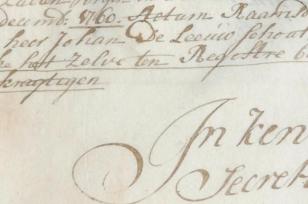 decemb: 1760. Actum Raam
heer Johan De Leeuw schou
het Zelve ten Registre
kragtigen
In ken
Secret